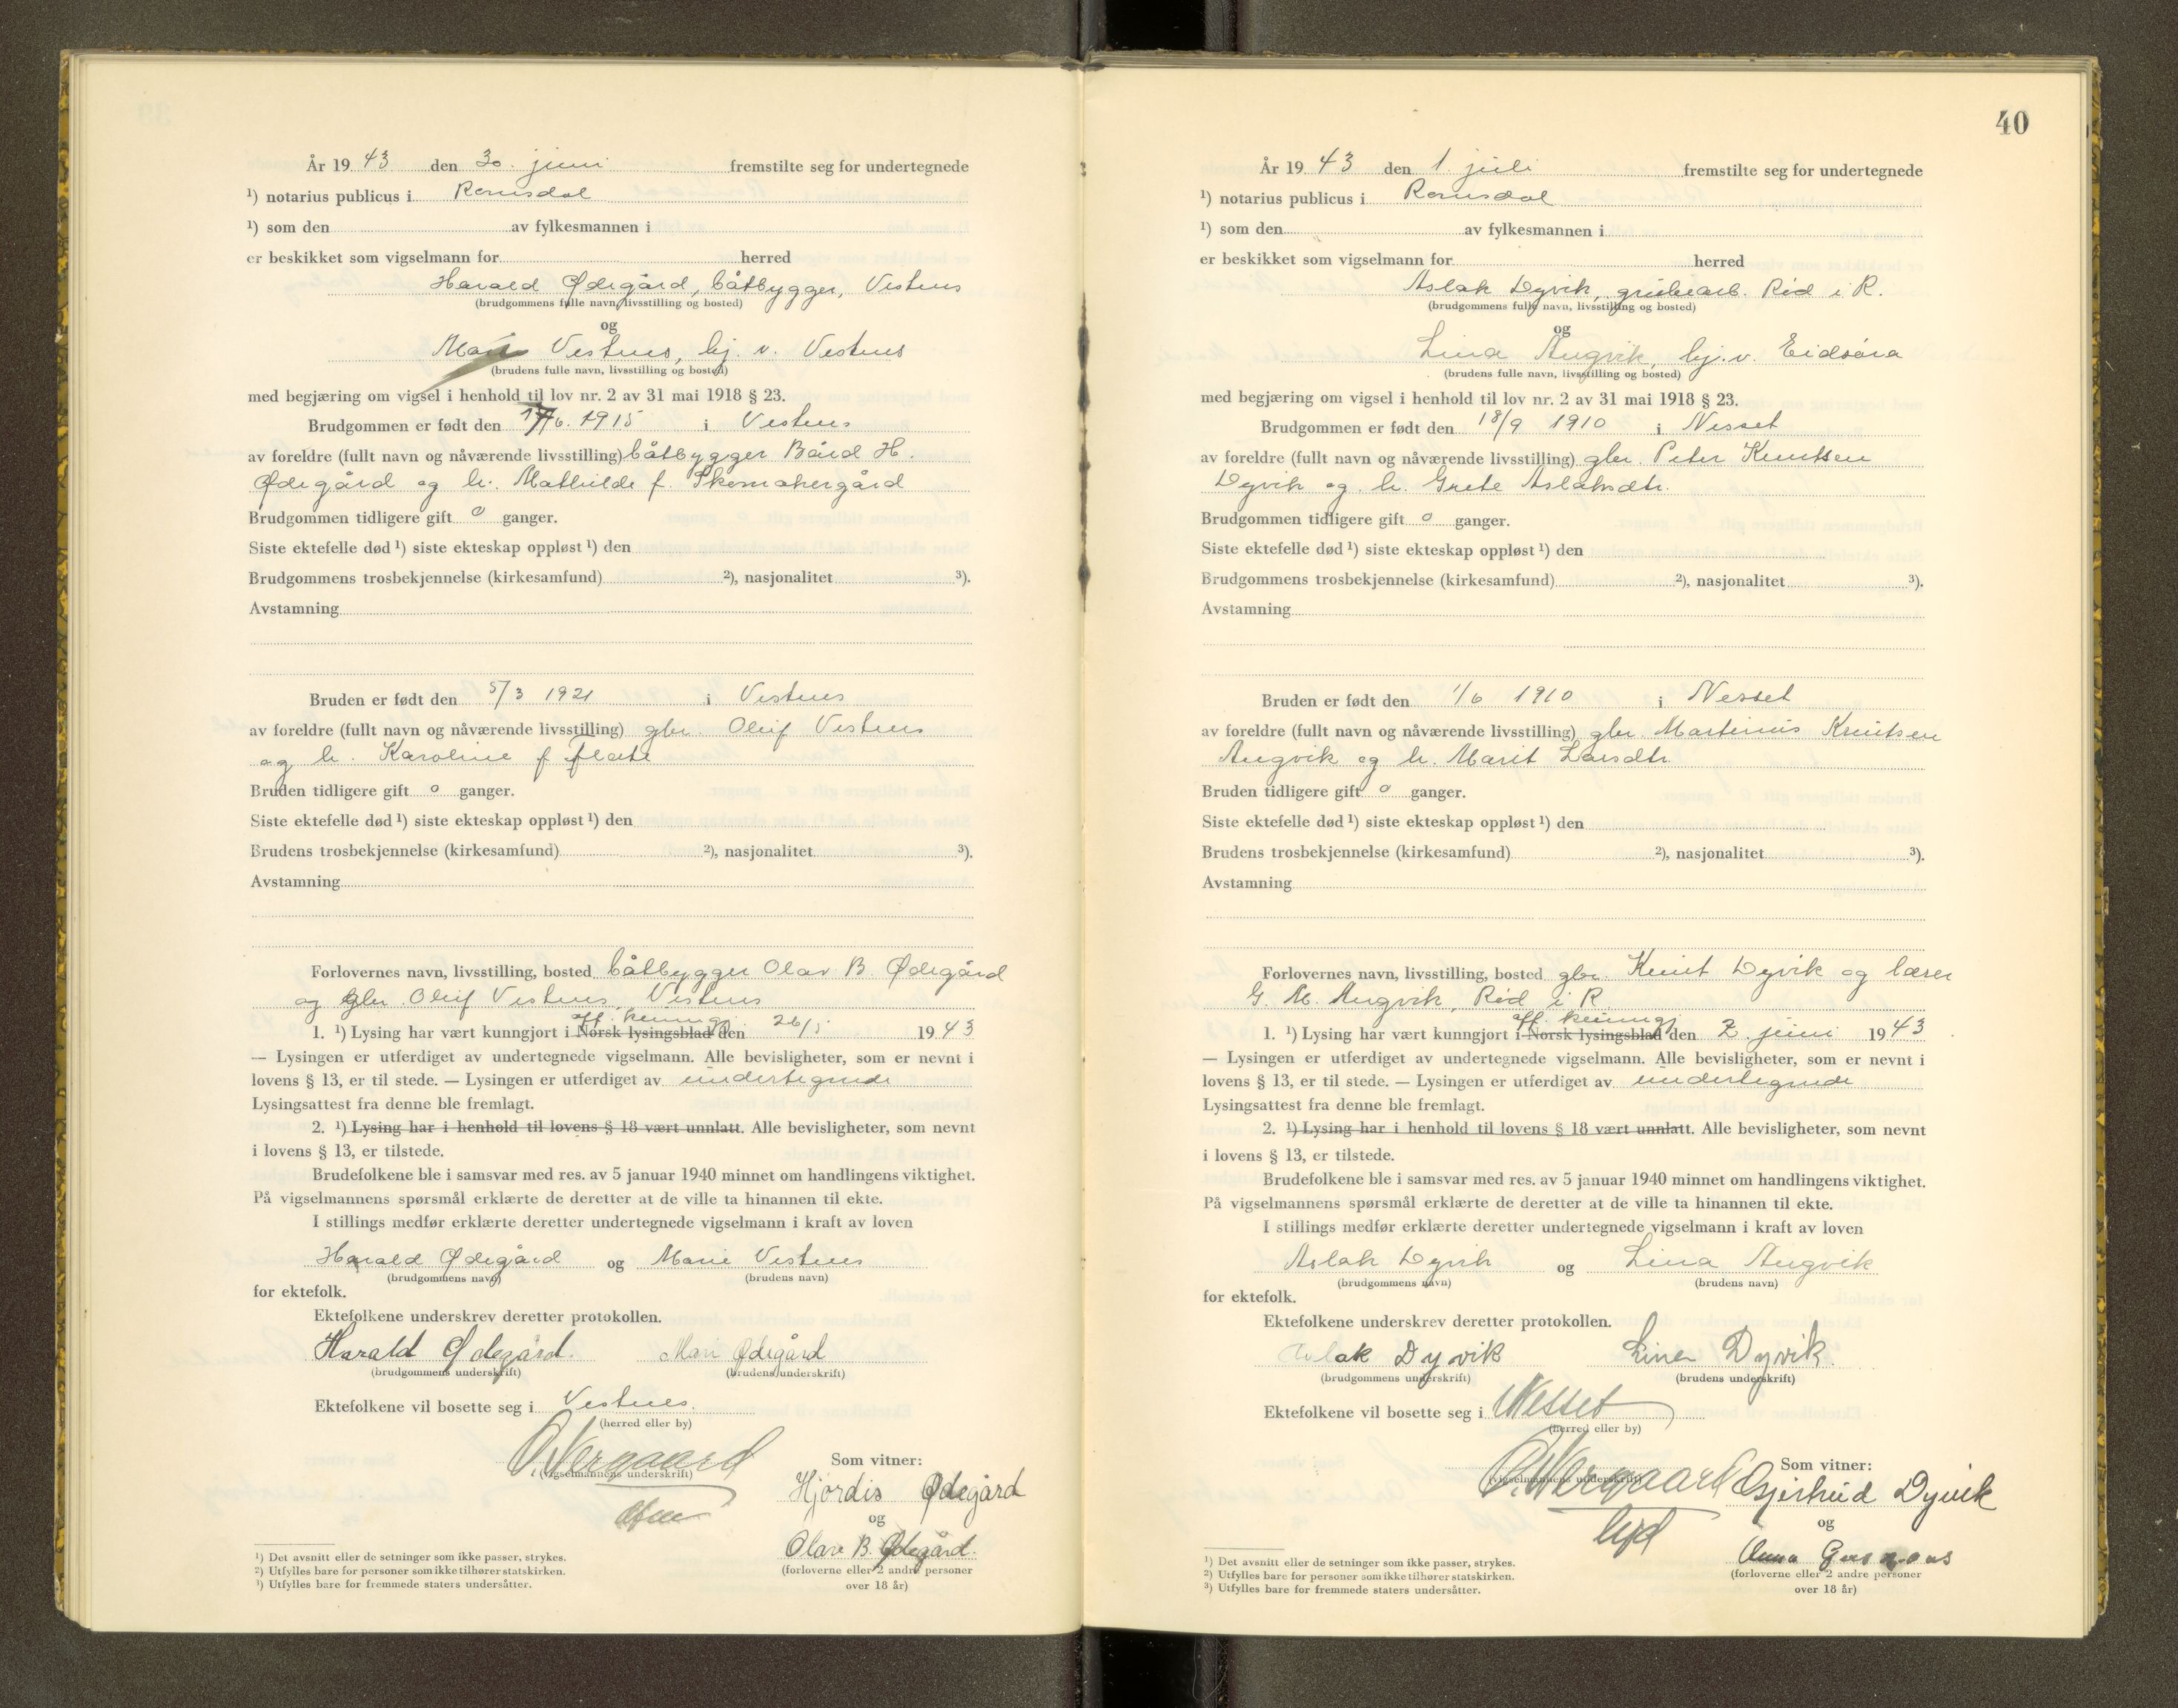 År 19 43 den 30. juni fremstilte seg for undertegnede
¹) notarius publicus i Romsdal
¹) som den av fylkesmannen i
er beskikket som vigselmann for herred
Harald Ødegård, båtbygger, Vestnes
(brudgommens fulle navn, livsstilling og bosted)
og
Mari Vestnes, hj. v. Vestnes
(brudens fulle navn, livsstilling og bosted)
med begjæring om vigsel i henhold til lov nr. 2 av 31 mai 1918 § 23.
Brudgommen er født den 6. 1915 i Vestnes
av foreldre (fullt navn og nåværende livsstilling) båtbygger Bård H.
Ødegård og h. Mathilde f. Skomakergård
Brudgommen tidligere gift 0 ganger.
Siste ektefelle død ¹) siste ekteskap oppløst ¹) den
Brudgommens trosbekjennelse (kirkesamfund) ²), nasjonalitet ³).
Avstamning
Bruden er født den 5/3 1921 i Vestnes
av foreldre (fullt navn og nåværende livsstilling) gbr. Oluf Vestnes
og h. Karoline f. Flate
Bruden tidligere gift 0 ganger.
Siste ektefelle død ¹) siste ekteskap oppløst ¹) den
Brudens trosbekjennelse (kirkesamfund) ²), nasjonalitet ³).
Avstamning
Forlovernes navn, livsstilling, bosted båtbygger Olav B. Ødegård
og gbr. Oluf Vestnes, Vestnes
off. kunngj.
1. ¹) Lysing har vært kunngjort i Norsk lysingsblad den 26/5 19 43
— Lysingen er utferdiget av undertegnede vigselmann. Alle bevisligheter, som er nevnt i
lovens § 13, er til stede. — Lysingen er utferdiget av undertegnede
Lysingsattest fra denne ble fremlagt.
2. ¹) Lysing har i henhold til lovens § 18 vært unnlatt. Alle bevisligheter, som nevnt
i lovens § 13, er tilstede.
Brudefolkene ble i samsvar med res. av 5 januar 1940 minnet om handlingens viktighet.
På vigselmannens spørsmål erklærte de deretter at de ville ta hinannen til ekte.
I stillings medfør erklærte deretter undertegnede vigselmann i kraft av loven
Harald Ødegård og Marie Vestnes
(brudgommens navn) (brudens navn)
for ektefolk.
Ektefolkene underskrev deretter protokollen.
Harald Ødegård. Mari Ødegård
(brudgommens underskrift) (brudens underskrift)
Ektefolkene vil bosette seg i Vestnes.
(herred eller by)
O. Nergaard
(vigselmannens underskrift)
Som vitner:
Hjördis Ødegård
og
Olav B. Ødegård.
(forloverne eller 2 andre personer
over 18 år)
¹) Det avsnitt eller de setninger som ikke passer, strykes.
²) Utfylles bare for personer som ikke tilhører statskirken.
³) Utfylles bare for fremmede staters undersåtter.
40
År 19 43 den 1. juli fremstilte seg for undertegnede
¹) notarius publicus i Romsdal
¹) som den av fylkesmannen i
er beskikket som vigselmann for herred
Aslak Dyvik, grubearb. Rød i R.
(brudgommens fulle navn, livsstilling og bosted)
og
Lina Angvik, hj. v. Eidsøra
(brudens fulle navn, livsstilling og bosted)
med begjæring om vigsel i henhold til lov nr. 2 av 31 mai 1918 § 23.
Brudgommen er født den 18/9 1910 i Nesset
av foreldre (fullt navn og nåværende livsstilling) gbr. Peter Knutsen
Dyvik og h. Grete Aslaksdtr.
Brudgommen tidligere gift 0 ganger.
Siste ektefelle død ¹) siste ekteskap oppløst ¹) den
Brudgommens trosbekjennelse (kirkesamfund) ²), nasjonalitet ³).
Avstamning
Bruden er født den 1/6 1910 i Nesset
av foreldre (fullt navn og nåværende livsstilling) gbr. Martinus Knutsen
Angvik og h. Marit Larsdtr
Bruden tidligere gift 0 ganger.
Siste ektefelle død ¹) siste ekteskap oppløst ¹) den
Brudens trosbekjennelse (kirkesamfund) ²), nasjonalitet ³).
Avstamning
Forlovernes navn, livsstilling, bosted gbr. Knut Dyvik og lærer
G. M. Angvik, Rød i R.
off. kunngj.
1. ¹) Lysing har vært kunngjort i Norsk lysingsblad den 2. juni 19 43
— Lysingen er utferdiget av undertegnede vigselmann. Alle bevisligheter, som er nevnt i
lovens § 13, er til stede. — Lysingen er utferdiget av undertegnede
Lysingsattest fra denne ble fremlagt.
2. ¹) Lysing har i henhold til lovens § 18 vært unnlatt. Alle bevisligheter, som nevnt
i lovens § 13, er tilstede.
Brudefolkene ble i samsvar med res. av 5 januar 1940 minnet om handlingens viktighet.
På vigselmannens spørsmål erklærte de deretter at de ville ta hinannen til ekte.
I stillings medfør erklærte deretter undertegnede vigselmann i kraft av loven
Aslak Dyvik og Lina Angvik
(brudgommens navn) (brudens navn)
for ektefolk.
Ektefolkene underskrev deretter protokollen.
Aslak Dyvik Lina Dyvik.
(brudgommens underskrift) (brudens underskrift)
Ektefolkene vil bosette seg i Nesset
(herred eller by)
O. Nergaard
(vigselmannens underskrift)
Som vitner:
Gjertrud Dyvik
og
Anna
(forloverne eller 2 andre personer
over 18 år)
¹) Det avsnitt eller de setninger som ikke passer, strykes.
²) Utfylles bare for personer som ikke tilhører statskirken.
³) Utfylles bare for fremmede staters undersåtter.